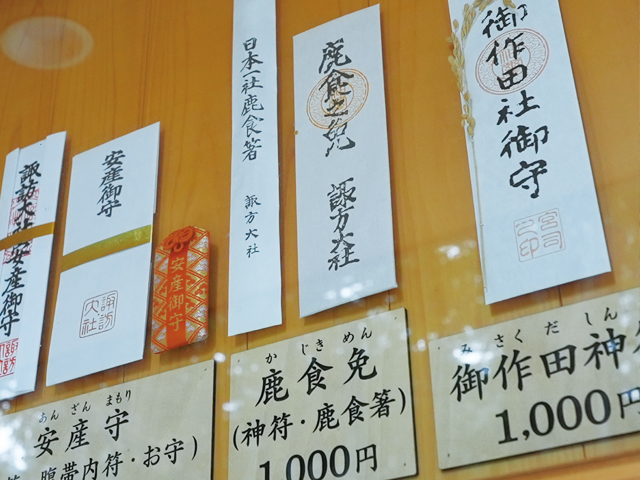 諏訪大社安産御守
安産御守
諏訪
大社
安産御守
日本一社鹿食箸 諏方大社
鹿食之免 諏方大社
御作田社御守
宮司
之印
あん ざん まもり
安産守
腹帯内符・お守)
か じき めん
鹿食免
(神符・鹿食箸)
1,000円
み さく だ しん
御作田神
1,000円